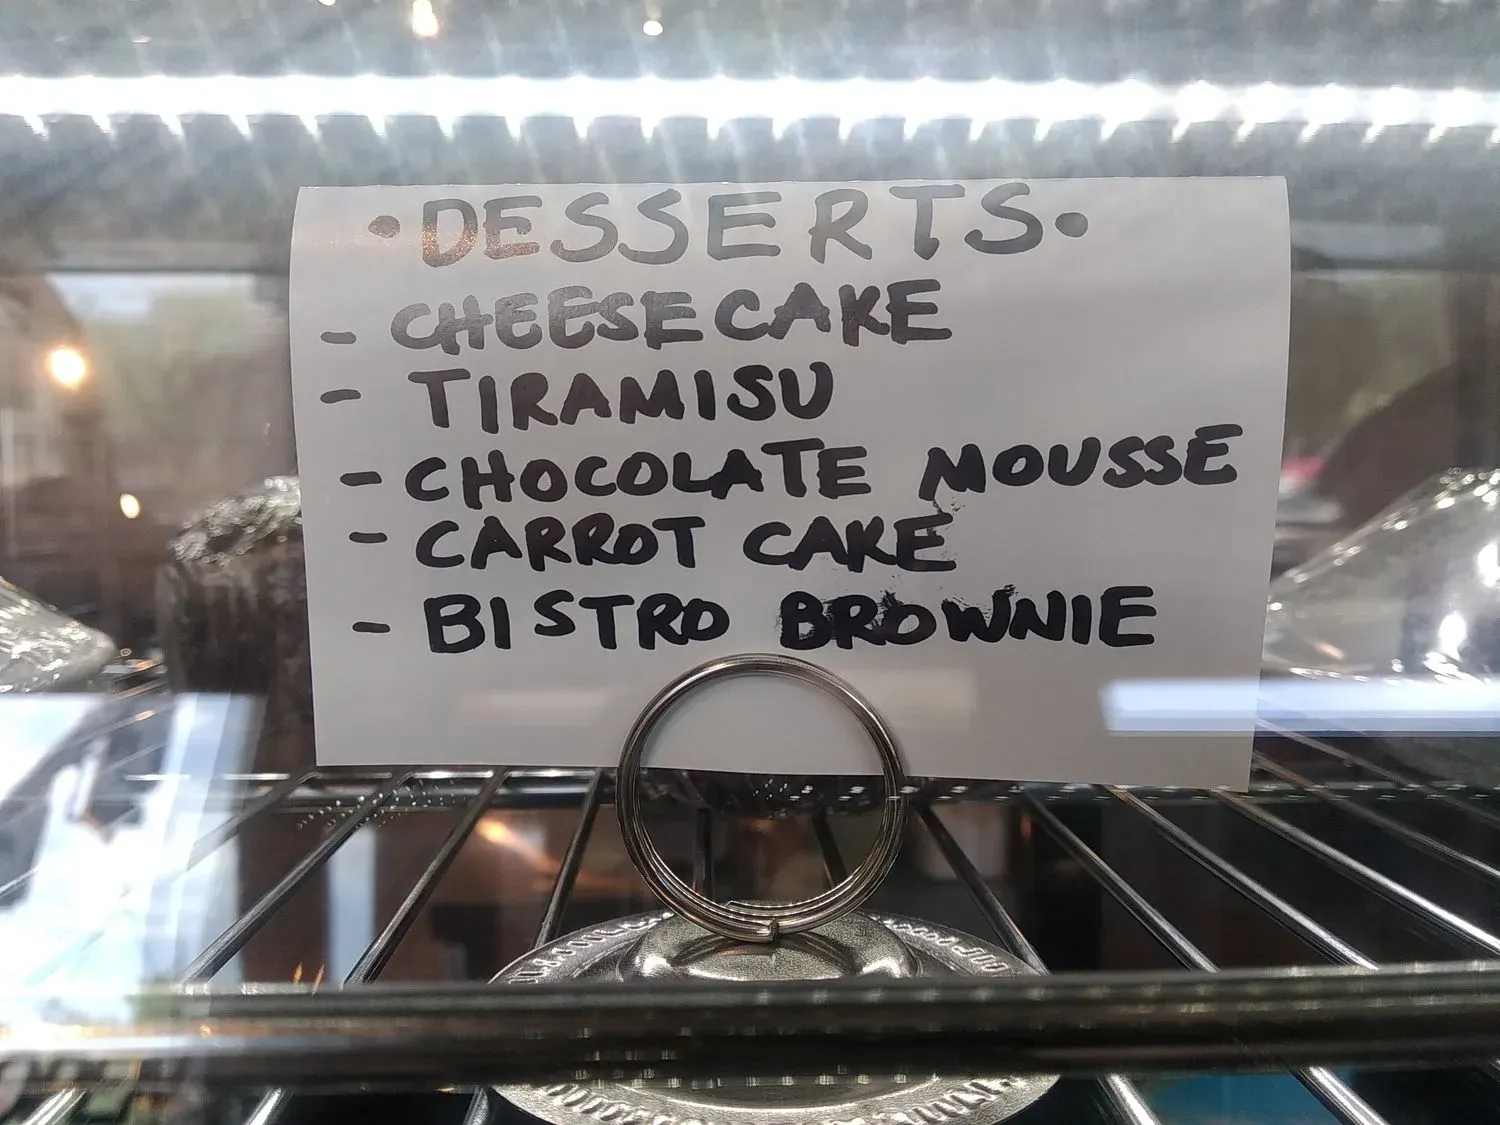 •DESSERTS•
- CHEESECAKE
- TIRAMISU
- CHOCOLATE MOUSSE
- CARROT CAKE
- BISTRO BROWNIE